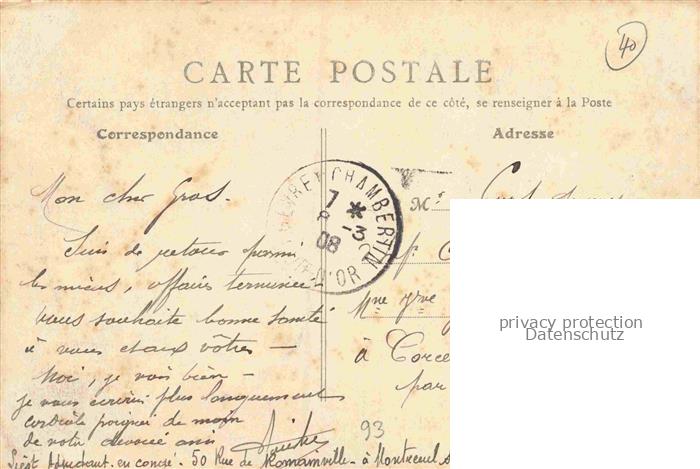 40
CARTE POSTALE
Certains pays étrangers n'acceptant pas la correspondance de ce côté, se renseigner à la Poste
Correspondance
Adresse
GEVREY-CHAMBERTIN
7
8 -3
08
CÔTE-D'OR
Mon cher Gros.
Suis de retour parmi
les miens, affaire terminée -
vous souhaite bonne santé
à vous et aux vôtres -
Moi, je vais bien -
je vous écrirai plus longuement
cordiale poignée de main
de votre dévoué ami
en congé. 50 Rue de Romainville - à Montreuil
M
à Corce
par
93
privacy protection
Datenschutz